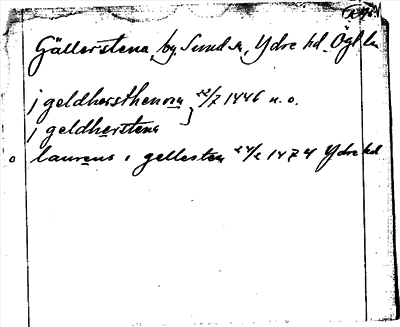 Gällerstena, by, Sund sn, Ydre hd. Ögl län
j geldhersthenom 22/7 1446 n. o.
j geldherstena
o laurens i gellesten 24/2 1474 Ydre hd